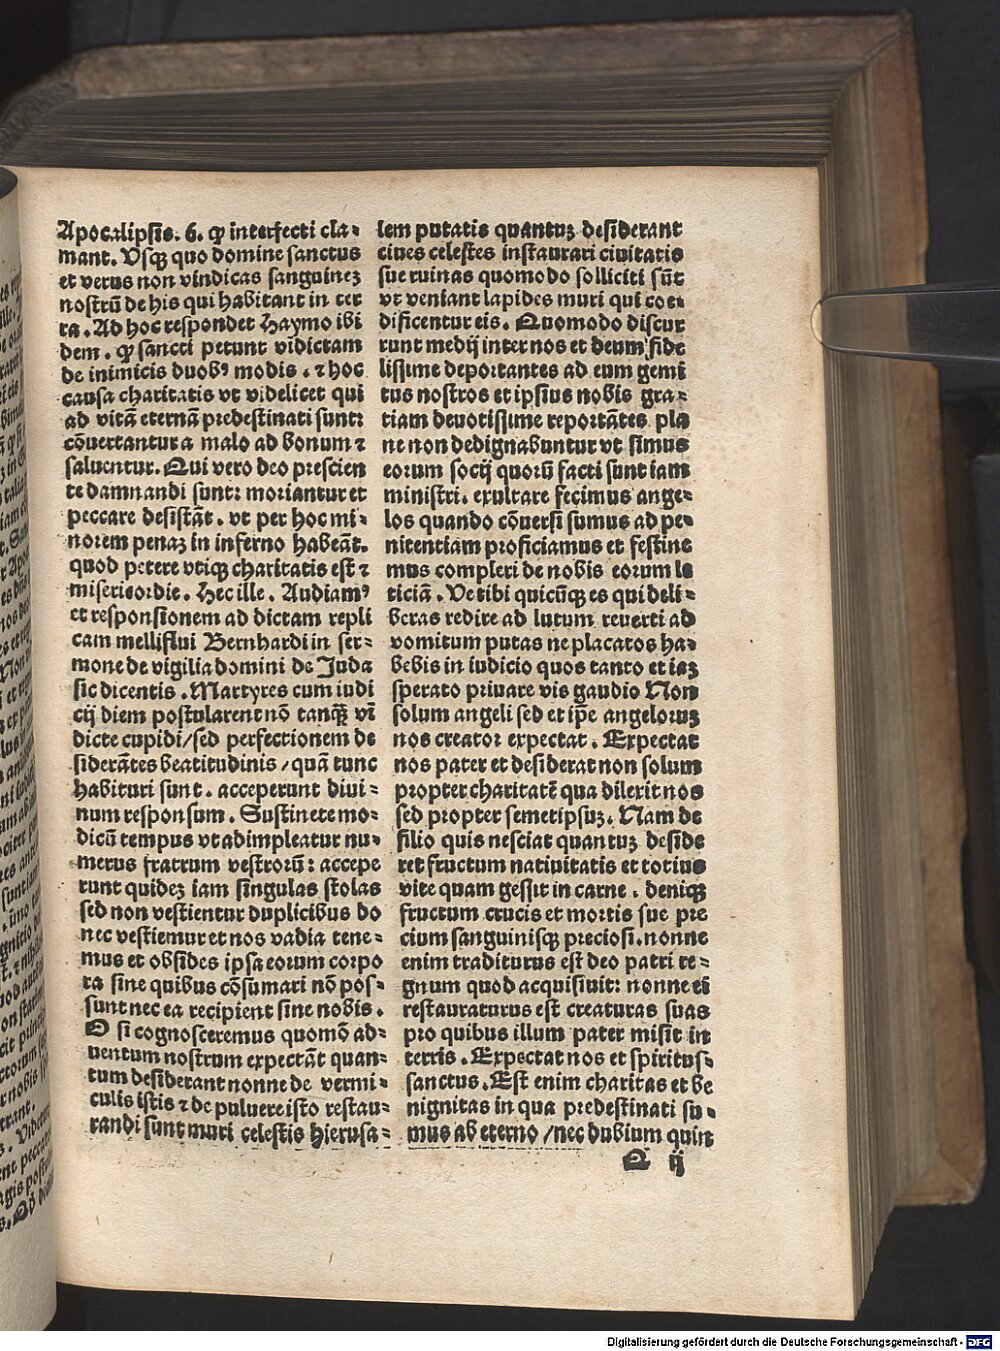 Apocalipsis. 6. ꝙ interfecti cla⸗
mant. Vsqꝫ quo domine sanctus
et verus non vindicas sanguineꝫ
nostrū de his qui habitant in ter
ra. Ad hoc respondet Haymo ibi
dem. ꝙ sancti petunt vīdictam
de inimicis duobꝰ modis. ⁊ hoc
causa charitatis vt videlicet qui
ad vitā eternā predestinati sunt:
cōuertantur a malo ad bonum ⁊
saluentur. Qui vero deo prescien
te damnandi sunt: moriantur et
peccare desistāt. vt per hoc mi⸗
norem penaꝫ in inferno habeāt.
quod petere vtiqꝫ charitatis est ⁊
misericordie. Hec ille. Audiamꝰ
et responsionem ad dictam repli
cam melliflui Bernhardi in ser⸗
mone de vigilia domini de Juda
sic dicentis. Martyres cum iudi
cij diem postularent nō tanqꝫ vī
dicte cupidi/sed perfectionem de
siderātes beatitudinis/quā tunc
habituri sunt. acceperunt diui⸗
num responsum. Sustinete mo⸗
dicū tempus vt adimpleatur nu⸗
merus fratrum vestrorū: accepe
runt quideꝫ iam singulas stolas
sed non vestientur duplicibus do
nec vestiemur et nos vadia tene⸗
mus et obsides ipsa eorum corpo
ra sine quibus cōsumari nō pos⸗
sunt nec ea recipient sine nobis.
O si cognosceremus quomō ad⸗
uentum nostrum expectāt quan⸗
tum desiderant nonne de vermi⸗
culis istis ⁊ de puluere isto restau⸗
randi sunt muri celestis hierusa⸗
lem putatis quantuꝫ desiderant
ciues celestes instaurari ciuitatis
sue ruinas quomodo solliciti sūt
vt veniant lapides muri qui coe⸗
dificentur eis. Quomodo discur
runt medij inter nos et deum fide
lissime deportantes ad eum gemi
tus nostros et ipsius nobis gra⸗
tiam deuotissime reportātes pla
ne non dedignabuntur vt simus
eorum socij quorū facti sunt iam
ministri. exultare fecimus ange⸗
los quando cōuersi sumus ad pe⸗
nitentiam proficiamus et festine
mus compleri de nobis eorum le
ticiā. Ve tibi quicūqꝫ es qui deli⸗
beras redire ad lutum reuerti ad
vomitum putas ne placatos ha⸗
bebis in iudicio quos tanto et iaꝫ
sperato priuare vis gaudio Non
solum angeli sed et ip̄e angeloruꝫ
nos creator expectat. Expectat
nos pater et desiderat non solum
propter charitatē qua dilexit nos
sed propter semetipsuꝫ. Nam de
filio quis nesciat quantuꝫ deside
ret fructum natiuitatis et totius
vite quam gessit in carne. deniqꝫ
fructum crucis et mortis sue pre
cium sanguinisqꝫ preciosi. nonne
enim traditurus est deo patri re⸗
gnum quod acquisiuit: nonne eī
restauraturus est creaturas suas
pro quibus illum pater misit in
terris. Expectat nos et spiritus
sanctus. Est enim charitas et be
nignitas in qua predestinati su⸗
mus ab eterno/nec dubium quin
Q ij
Digitalisierung gefördert durch die Deutsche Forschungsgemeinschaft - DFG